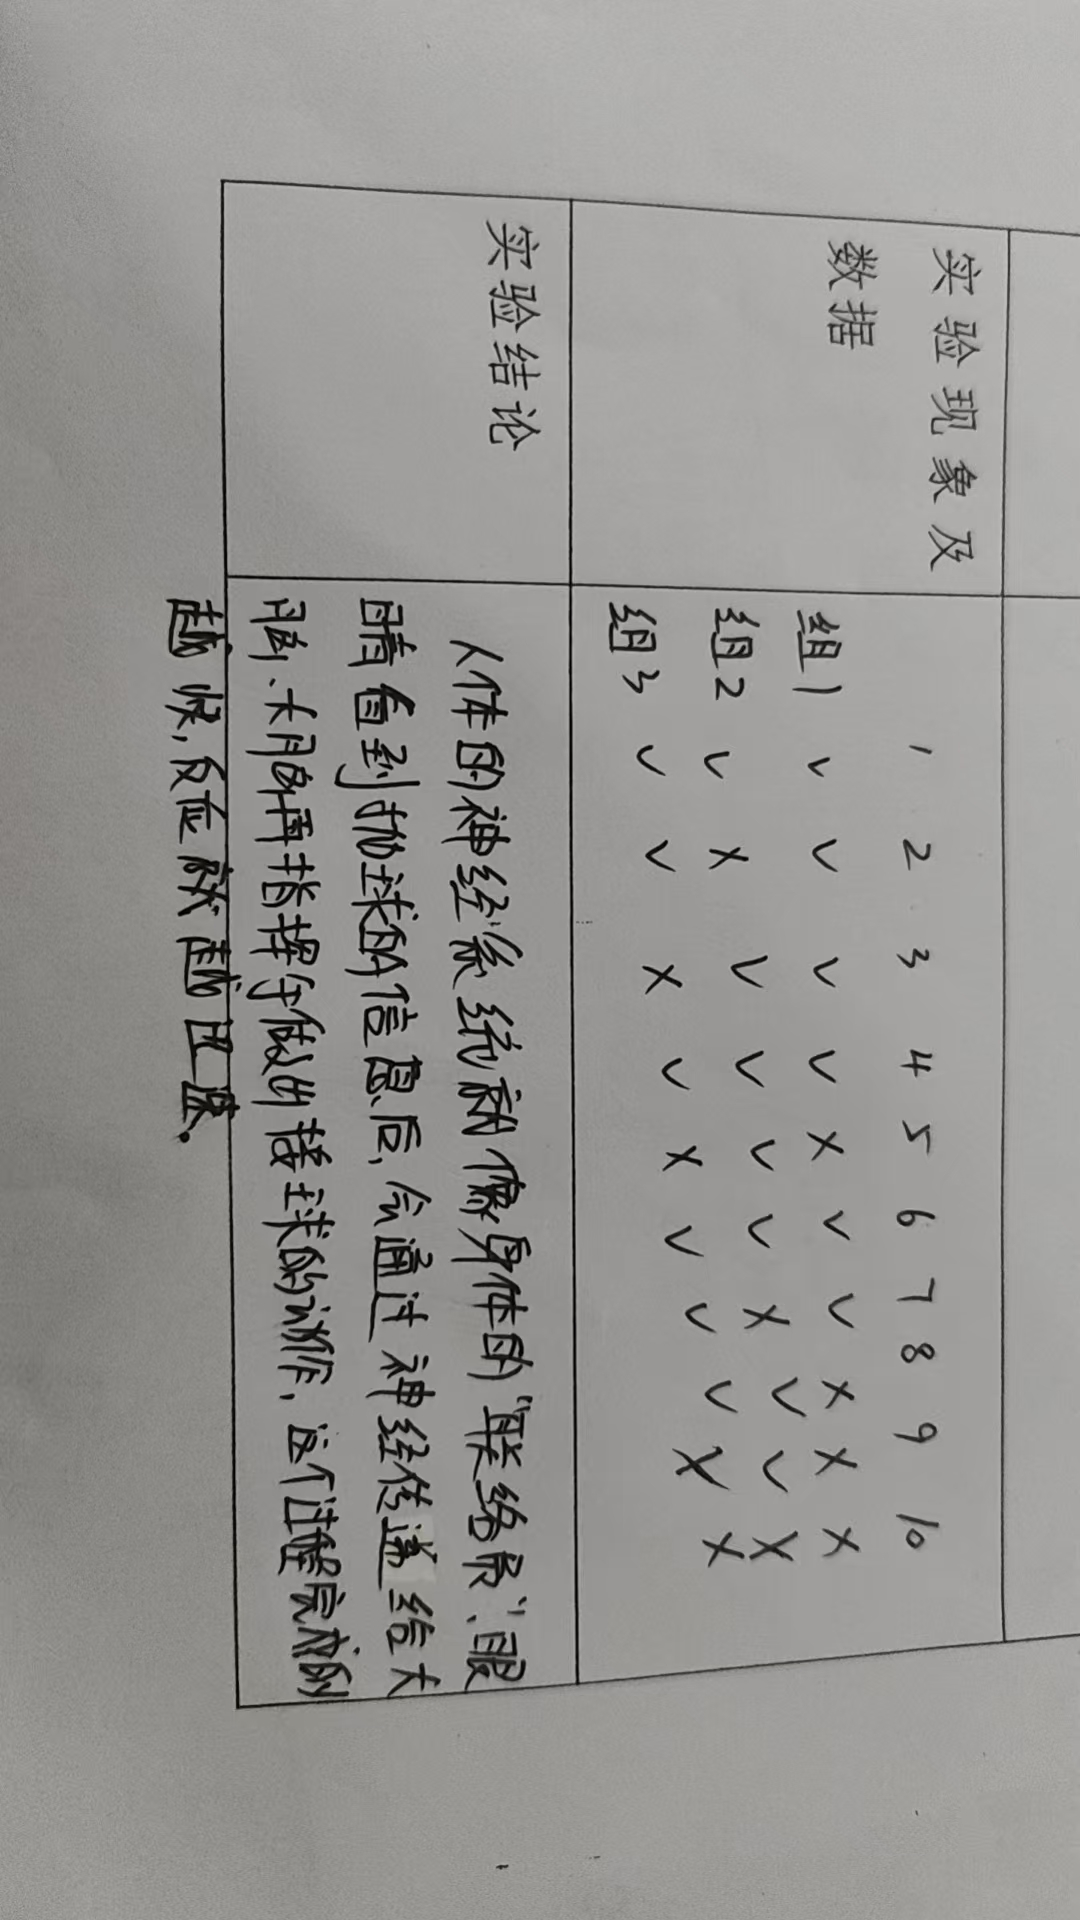 实验现象及
数据
1 2 3 4 5 6 7 8 9 10
组1 ✓ ✓ ✓ ✓ × ✓ ✓ × × ×
组2 ✓ × ✓ ✓ ✓ ✓ × ✓ ✓ ×
组3 ✓ ✓ × ✓ × ✓ ✓ ✓ × ×
实验结论
人体的神经系统就像身体的“联络员”、眼
睛看到抛球的信息后,会通过神经传递给大
脑、大脑再指挥手做出接球的动作,这个过程完成的
越快,反应就越迅速.